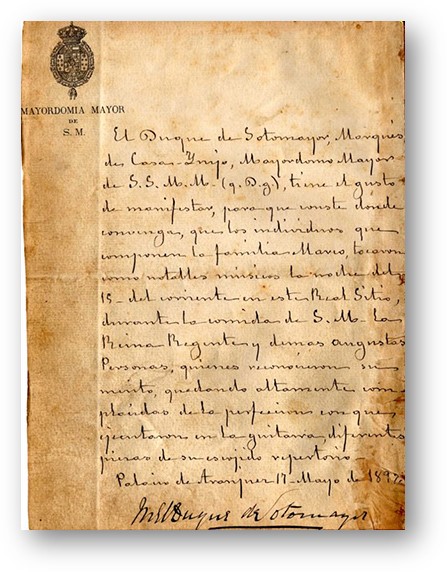 MAYORDOMIA MAYOR
DE
S. M.
El Duque de Sotomayor, Marqués
de Casa-Yrujo, Mayordomo Mayor
de S.S. M.M. (q. D. g), tiene el gusto
de manifestar, para que conste donde
convenga, que los individuos que
componen la familia Marco, tocaron
como notables músicos la noche del
15 del corriente en este Real Sitio,
durante la comida de S. M. la
Reina Regente y demas augustas
Personas, quienes reconocieron su
mérito, quedando altamente com-
placidas de la perfeccion con que
ejecutaron en la guitarra diferentes
piezas de su escojido repertorio.
Palacio de Aranjuez 17 Mayo de 189
El Duque de Sotomayor